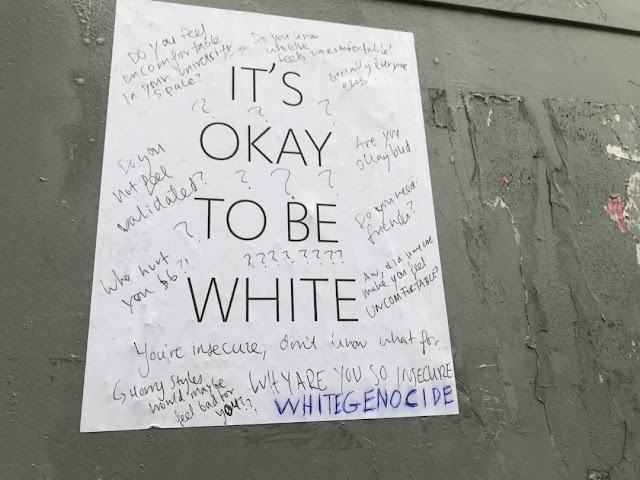 Do you feel
uncomfortable
in your university
space?
Do you know
who else
feels uncomfortable?
literally everyone
IT'S
? ?
OKAY
? ? ?
TO BE
?
????????
WHITE
Do you
not feel
validated?
Who hurt
you bb?!
Are you
okay bud.
Do you need
friends?
Aw, did someone
make you feel
UNCOMFORTABLE?
You're insecure, don't know what for
Harry Styles
would maybe
feel bad for
you??
WHY ARE YOU SO INSECURE
WHITEGENOCIDE